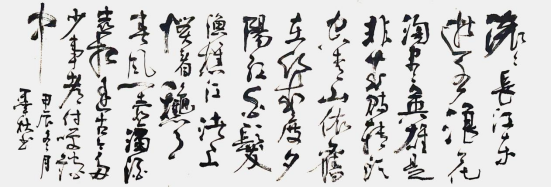 滚々長江东
逝水浪花
淘尽英雄是
非成敗转头
空青山依舊
在几度夕
陽红白髮
漁樵江渚上
惯看秋月
春风一壶濁酒
喜相逢古今多
少事都付笑谈
中
甲辰冬月